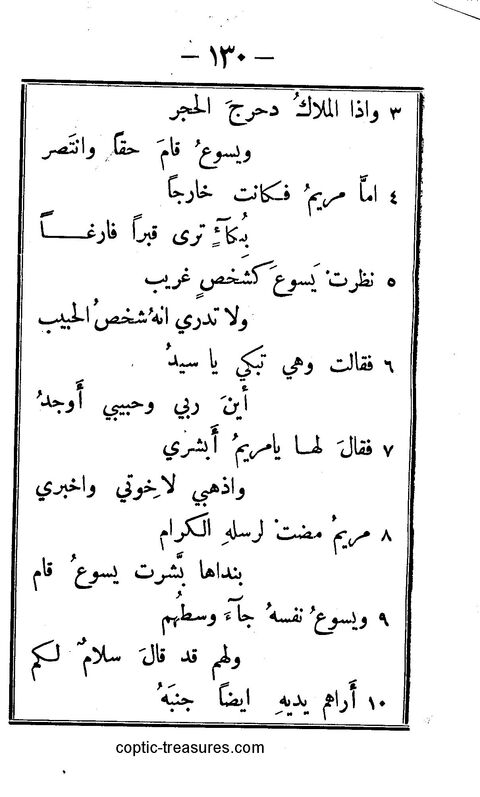 - ١٣٠ -
٣ واذا الملاكُ دحرجَ الحجر
ويسوعُ قامَ حقاً وانتَصر
٤ امَّا مريمُ فـكانت خارجاً
بِبُكآءٍ ترى قبراً فارغـــاً
٥ نظرتْ يَسوعَ كشخصٍ غريب
ولا تدري انهُ شخصُ الحبيب
٦ فقالت وهي تبكي يا سيدُ
أينَ ربي وحبيبي أَوجدُ
٧ فقالَ لهـا يامريمُ أَبشري
واذهبي لاخِوتي واخبري
٨ مريمُ مضتْ لرسلهِ الكرام
بنداها بشَّرت يسوعُ قام
٩ ويسوعُ نفسهُ جآءَ وسطهُم
ولهم قد قالَ سلامٌ لكم
١٠ أَراهم يديهِ ايضاً جنبَهُ
coptic-treasures.com